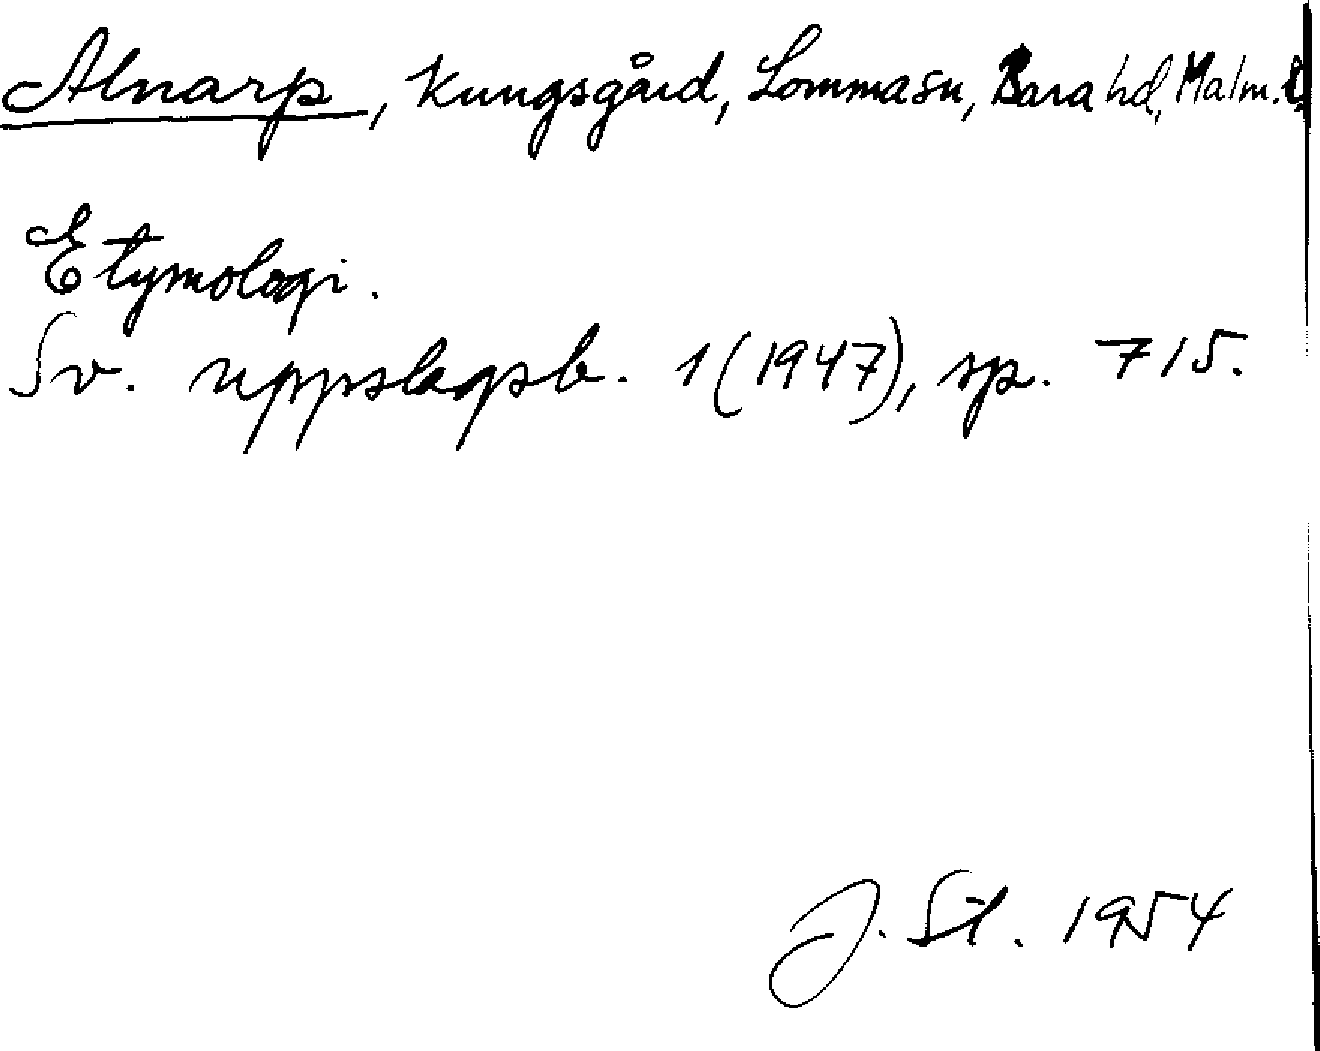 Alnarp, Kungsgård, Lomma sn, Bara hd, Malm. l.
Etymologi.
Sv. uppslagsb. 1 (1947), sp. 715.
J. 1954